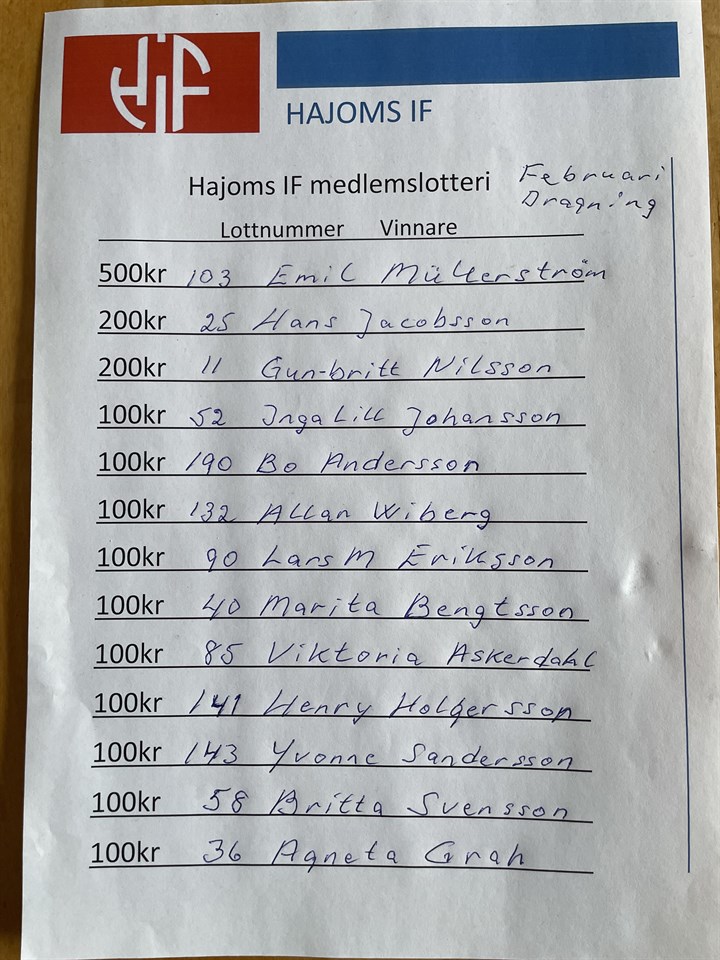 HIF
HAJOMS IF
Hajoms IF medlemslotteri
Februari
Dragning
Lottnummer Vinnare
500kr 103 Emil Müllerström
200kr 25 Hans Jacobsson
200kr 11 Gun-britt Nilsson
100kr 52 Inga Lill Johansson
100kr 190 Bo Andersson
100kr 132 Allan Wiberg
100kr 90 Lars M Eriksson
100kr 40 Marita Bengtsson
100kr 85 Viktoria Askerdahl
100kr 141 Henry Holgersson
100kr 143 Yvonne Sandersson
100kr 58 Britta Svensson
100kr 36 Agneta Grah